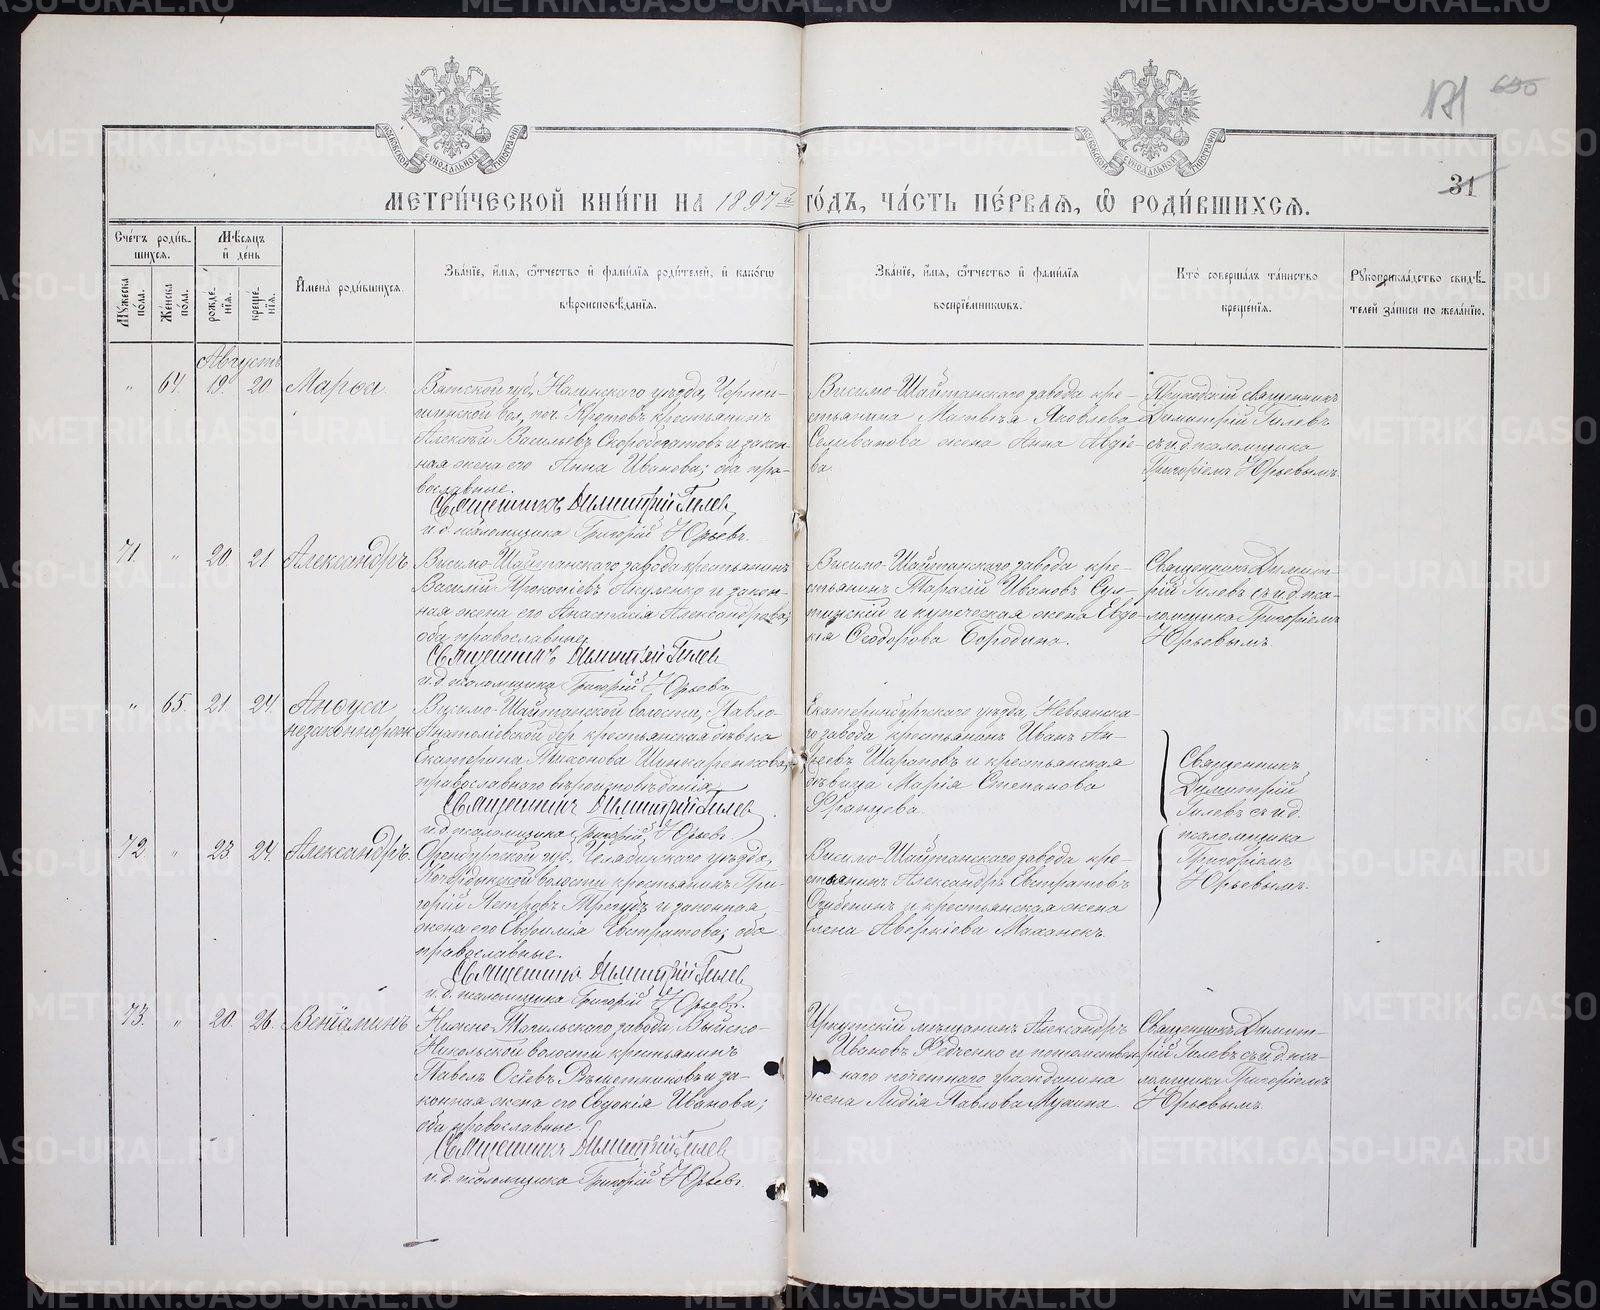 171 655
31
МОСКОВСКОЙ СѴНОДАЛЬНОЙ ТИПОГРАФІИ
МОСКОВСКОЙ СѴНОДАЛЬНОЙ ТИПОГРАФІИ
МЕТРИ́ЧЕСКОЙ КНИ́ГИ НА 1897й ГО́ДЪ, ЧА́СТЬ ПЕ́РВАѦ, Ѽ РОДИ́ВШИХСѦ.
Сче́тъ роди́в-
шихсѧ.
Мꙋ́жеска по́ла.
Же́нска по́ла.
Мѣ́сѧцъ
и҆ де́нь
рожде́-
нїѧ.
креще́-
нїѧ.
И҆мена̀ роди́вшихсѧ.
Зва́нїе, и҆́мѧ, ѻ҆́тчество и҆ фами́лїѧ роди́телей, и҆ како́гѡ
вѣроисповѣ́данїѧ.
Зва́нїе, и҆́мѧ, ѻ҆́тчество и҆ фами́лїѧ
воспрїе́мникѡвъ.
Кто̀ соверша́лъ та́инство
креще́нїѧ.
Рꙋкоприкла́дство свидѣ́-
телей за́писи по жела́нїю.
Августъ
" 64 19. 20. Марѳа.
Вятской губ., Нолинскаго уѣзда,
вол., поч. Кротовъ крестьянинъ
Алексѣй Васильевъ Скоробогатовъ и закон-
ная жена его Анна Иванова; оба пра-
вославные.
Священникъ Димитрій Гилев
и. д. псаломщика Григорій Юрьевъ.
Висимо-Шайтанскаго завода кре-
стьянина Матвѣя Яковлева
Селиванова жена Анна Авдіе-
ва.
Приходскій священникъ
Димитрій Гилевъ
съ и. д. псаломщика
Григоріемъ Юрьевымъ.
71. " 20. 21. Александръ.
Висимо-Шайтанскаго завода крестьянинъ
Василій Прокопіевъ Акуленко и закон-
ная жена его Анастасія Александрова;
оба православные.
Священникъ Димитрій Гилев
и. д. псаломщика Григорій Юрьевъ.
Висимо-Шайтанскаго завода кре-
стьянинъ Тарасій Ивановъ
и купеческая жена Евдо-
кія Ѳеодорова Бородина.
Священникъ Димит-
рій Гилевъ съ и. д. пса-
ломщика Григоріемъ
Юрьевымъ.
" 65. 21. 24. Анѳуса
незаконнорож
Висимо-Шайтанской волости, Павло-
Анатоліевской дер. крестьянская дѣвка
Екатерина Тихонова Шинкаренкова,
православнаго вѣроисповѣданія.
Священникъ Димитрій Гилев.
и. д. псаломщика Григорій Юрьевъ.
Екатеринбургскаго уѣзда, Невьянска-
го завода крестьянинъ Иванъ Ан-
дреевъ Шараповъ и крестьянская
дѣвица Марія Степанова
Францева.
Священникъ
Димитрій
Гилевъ съ и. д.
псаломщика
Григоріемъ
Юрьевымъ.
72. " 23. 24. Александръ.
Оренбургской губ., Челябинскаго уѣзда,
Кочердыкской волости крестьянинъ Гри-
горій Петровъ Трегубъ и законная
жена его Евфимія Евстратова; оба
православные.
Священникъ Димитрій Гилев
и. д. псаломщика Григорій Юрьевъ.
Висимо-Шайтанскаго завода кре-
стьянинъ Александръ Евстратовъ
и крестьянская жена
Елена Аверкіева Маханекъ.
73. " 20. 26. Веніаминъ
Нижне-Тагильскаго завода, Выйско-
Никольской волости крестьянинъ
Павелъ Осіевъ Рѣшетниковъ и за-
конная жена его Евдокія Иванова;
оба православные.
Священникъ Димитрій Гилев
и. д. псаломщика Григорій Юрьевъ.
Иркутскій мѣщанинъ Александръ
Ивановъ Федченко и потомствен-
наго почетнаго гражданина
жена Лидія Павлова Мухина.
Священникъ Димит-
рій Гилевъ съ и. д. пса-
ломщика Григоріемъ
Юрьевымъ.
METRIKI.GASO-URAL.RU